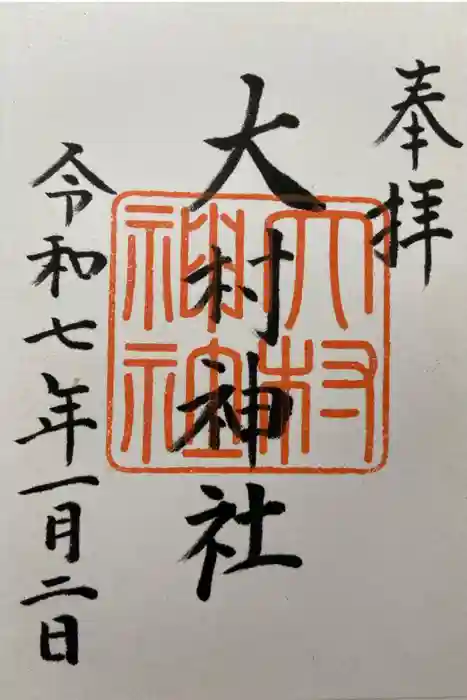 奉拝
大村神社
大村神社
令和七年一月二日